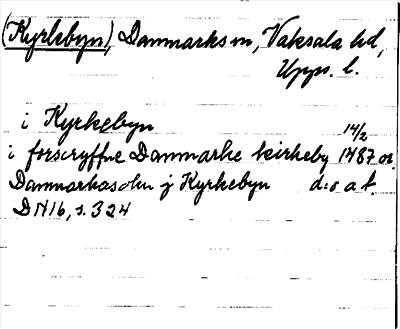 (Kyrkebyn), Danmarks sn, Vaksala hd,
Upps. l.
i Kyrkebyn 14/2
i forscryffne Danmarke kirkeby 1487 or.
Danmarkasokn j Kyrkebyn d:o a f.
DN16, s. 324